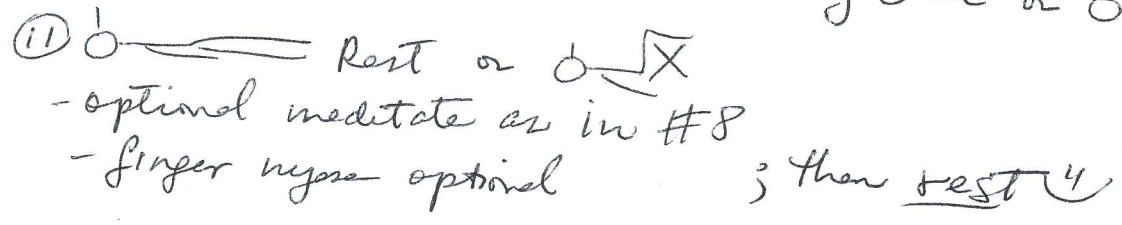 11 Rest or
- optional meditate as in #8
- finger nyasa optional ; then rest